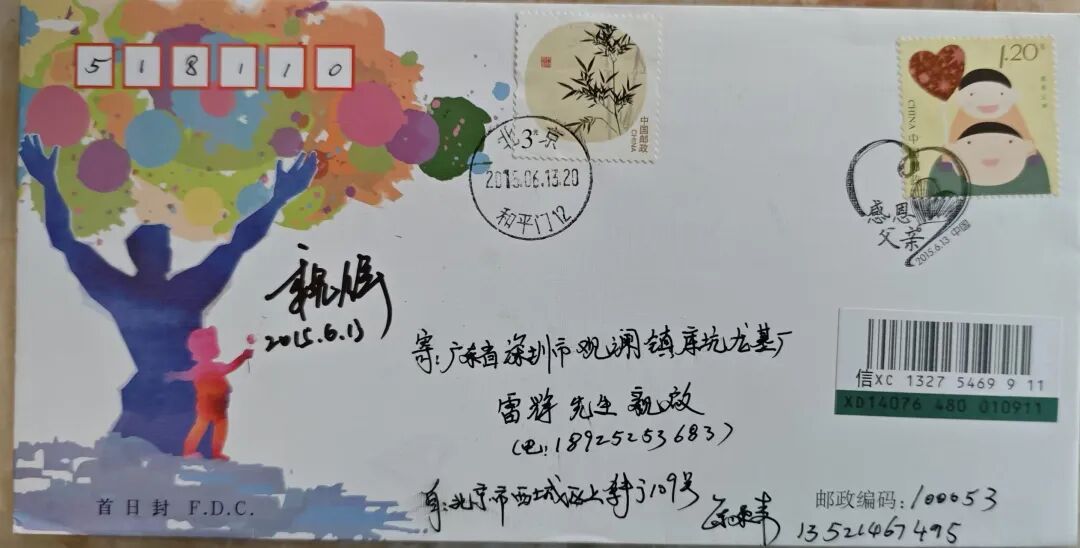 518110
中国邮政
CHINA
北京
3元
2015.06.13.20
和平门12
1.20元
感恩父亲
CHINA 中国邮政
感恩
父亲
2015.6.13 中国
2015.6.13
寄:广东省深圳市观澜镇库坑龙基厂
雷辉 先生 亲启
(电:18925253683)
信XC 1327 5469 9 11
XD14076 480 010911
首日封 F.D.C.
自:北京市西城区上斜街109号
邮政编码:100053
13521467495